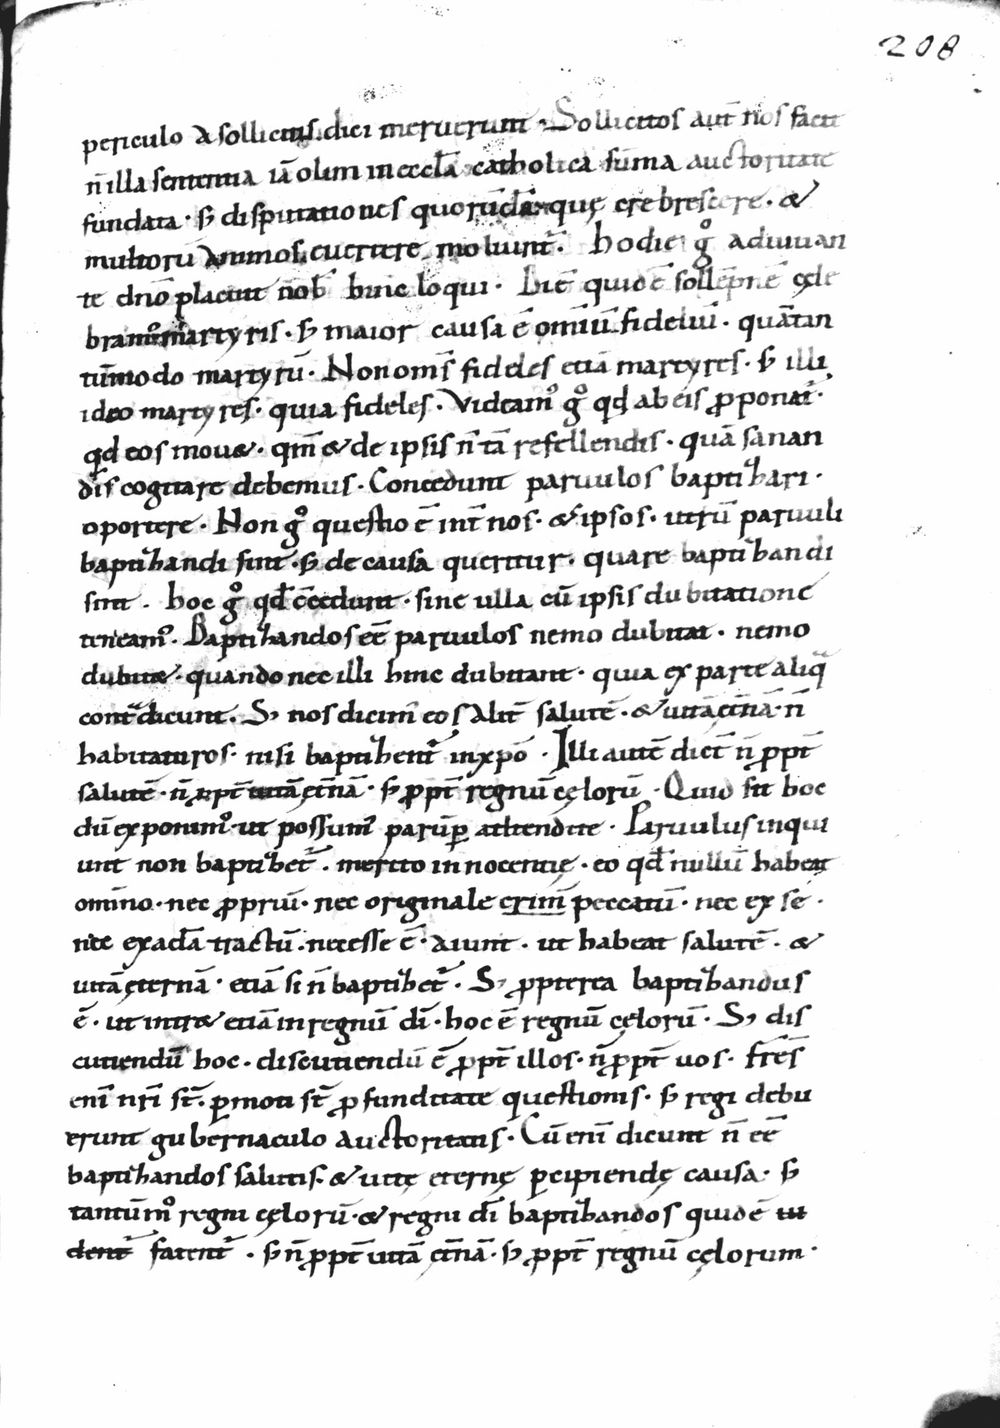 208
periculo a sollicitis dici meruerunt · Sollicitos aut̄ nos facit
n̄ illa sententia iā olim in eccl̄a catholica sūma auctoritate
fundata · s; disputationes quorūdā · que crebrescere · &
multorū animos euertere moliunt̄ · hodie gͦ adiuuan
te dn̄o placuit nob̄ hinc loqui · Diē quidē sollēpnē cęle
bram᷒ martyris · s; maior causa ē om̄iū fideliū · quā tan
tūmodo martyrū · Non om̄s fideles etiā martyres · s; illi
ideo martyres · quia fideles · Videam᷒ gͦ qd̄ ab eis ꝓponat᷑ ·
qd̄ eos mou& · qm̄ & de ipsis n̄ tā refellendis · quā sanan
dis cogitare debemus · Concedunt paruulos baptizari ·
oportere · Non gͦ questio ē int̄ nos · & ipsos · utrū paruuli
baptizandi sint · s; de causa queritur · quare baptizandi
sint · hoc gͦ qd̄ c̄cedunt · sine ulla cū ipsis dubitatione
teneam᷒ · Baptizandos eē paruulos nemo dubitat · nemo
dubit& · quando nec illi hinc dubitant · qui a ex parte aliq̄
contᷓdicunt · S; nos dicim᷒ eos alit̄ salutē · & uitā ęt̄nā · n̄
habituros · nisi baptizent᷑ in xp̄o · Illi autē dic̄t n̄ ꝓpt̄
salutē · n̄ ꝓpt̄ uitā ęt̄nā · s; ꝓpt̄ regnū cęlorū · Quid sit hoc
dū exponim᷒ · ut possum᷒ parūꝑ attendite · Paruulus inqui
unt non baptizet᷑ · merito innocentię · eo qd̄ nullū habeat
om̄ino · nec ꝓpriū · nec originale crim̄ peccatū · nec ex se ·
nec ex adā tractū · necesse ē · aiunt · ut habeat salutē · &
uitā ęternā · etiā si n̄ baptizet᷑ · S; ꝓpterea baptizandus
ē · ut intr& etiā in regnū dī · hoc ē regnū cęlorū · S; dis
cutiendū hoc · discutiendū ē ꝓpt̄ illos · n̄ ꝓpt̄ uos · fr̄es
enī nr̄i st̄ · ꝑmoti st̄ ꝓfunditate questionis · s; regi debu
erunt gubernaculo auctoritatis · Cū enī dicunt n̄ eē
baptizandos salutis · & uitę eternę ꝑcipiendę causa · s;
tantūm᷒ regni cęlorū · & regni dī baptizandos quidē ui
dent᷑ fatent᷑ · s; n̄ ꝓpt̄ uitā ęt̄nā · s; ꝓpt̄ regnū cęlorum ·